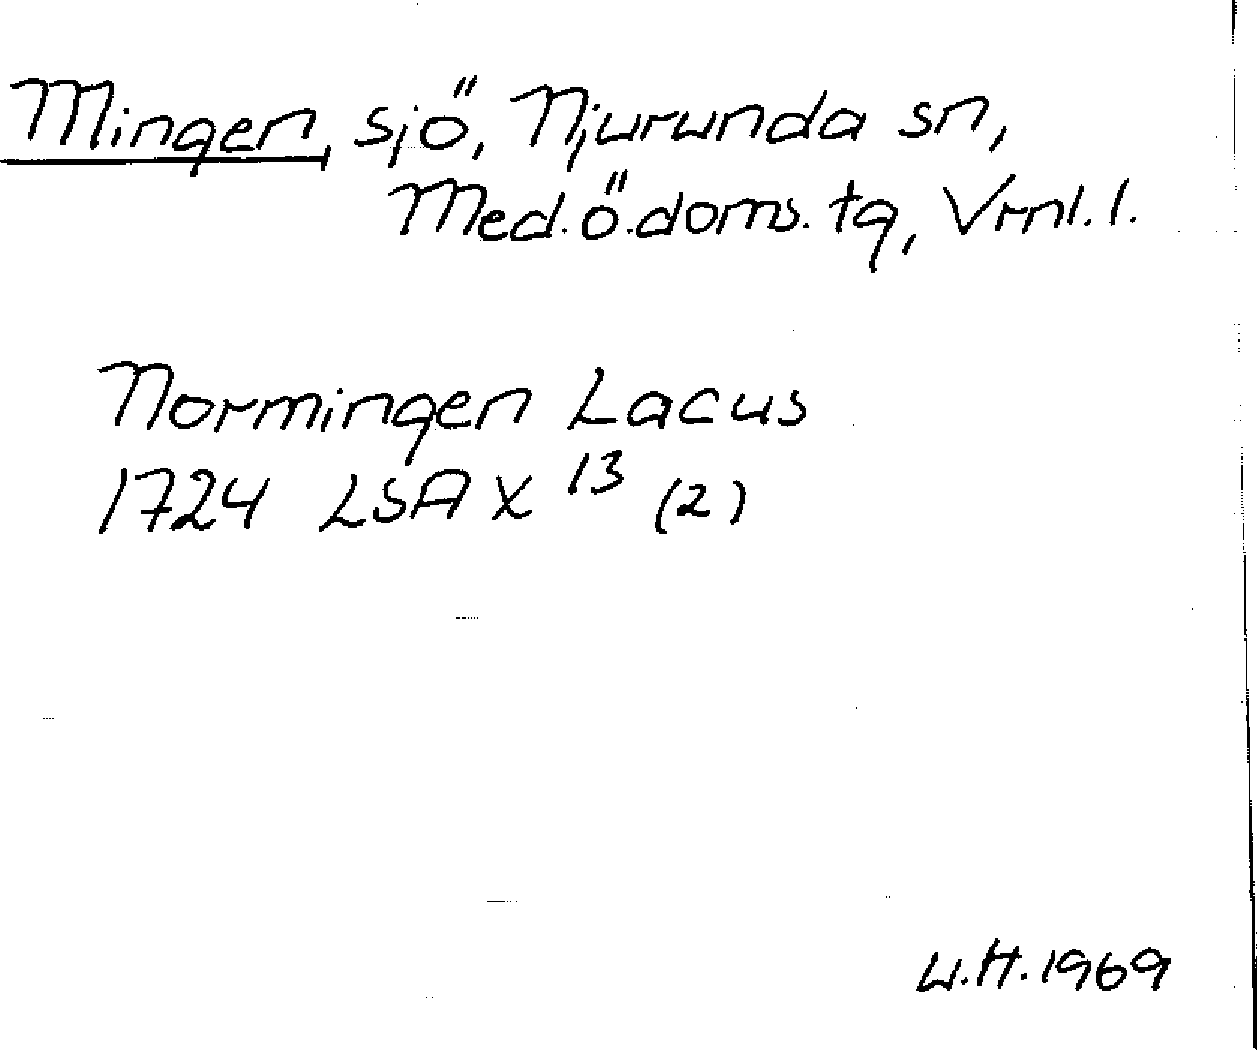 Mingen, sjö, Njurunda sn,
Med.ö.doms. tg, Vrnl. l.
Normingen Lacus
1724 LSA X 13 (2)
W.H. 1969